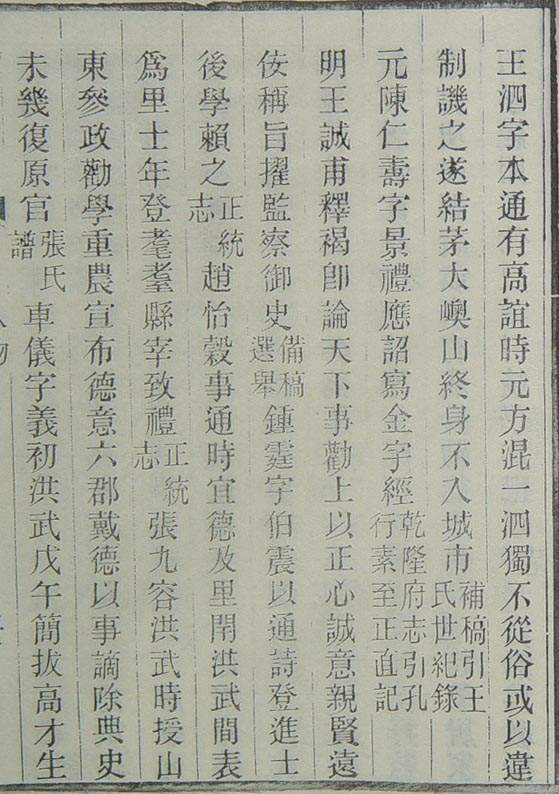 王泗字本通有高誼時元方混一泗獨不從俗或以違
制譏之遂結茅大嶴山終身不入城市補稿引王氏世紀錄
元陳仁壽字景禮應詔寫金字經乾隆府志引孔行素至正直記
明王誠甫釋褐卽論天下事勸上以正心誠意親賢遠
佞稱旨擢監察御史備稿選舉鍾霆字伯震以通詩登進士
後學賴之正統志趙怡穀事通時宜德及里閈洪武間表
爲里士年登耄耋縣宰致禮正統志張九容洪武時授山
東參政勸學重農宣布德意六郡戴德以事謫除典史
未幾復原官張氏譜車儀字義初洪武戊午簡拔高才生